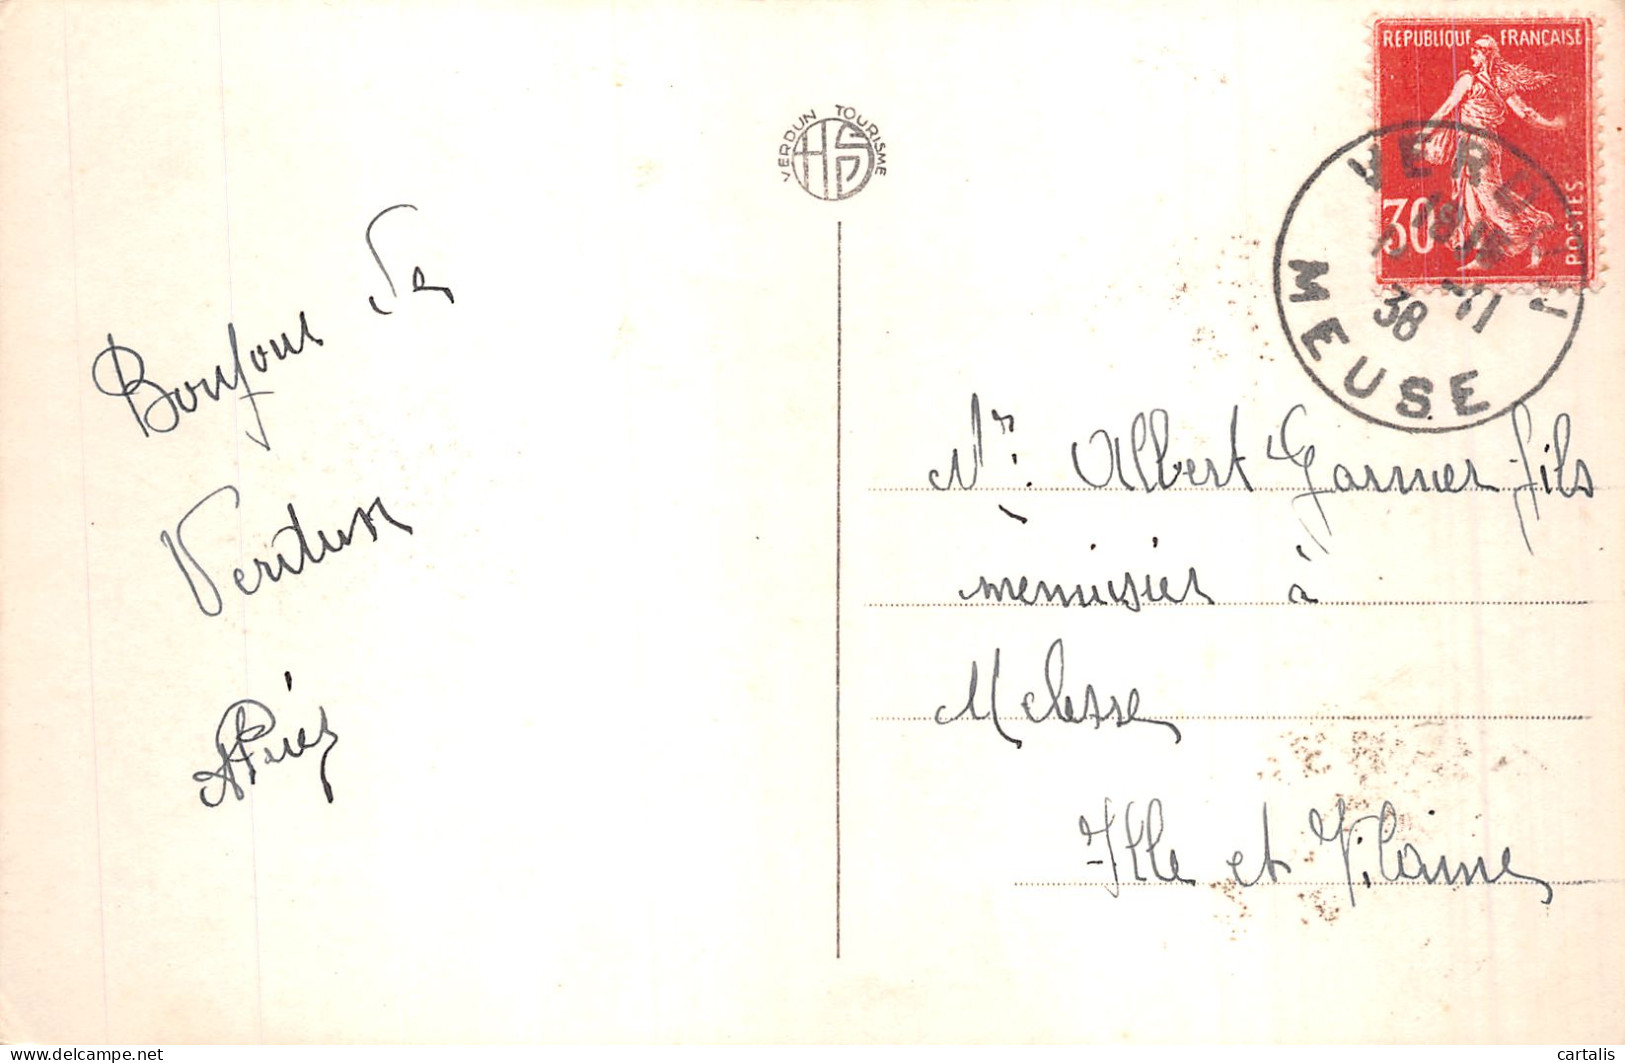 REPUBLIQUE FRANCAISE
30
POSTES
VERDUN
18
38 -11
MEUSE
VERDUN TOURISME
HS
Bonjour de
Verdun
Mr. Albert Garnier fils
menuisier à
Melesse
Ille et Vilaine
delcampe.net
cartalis